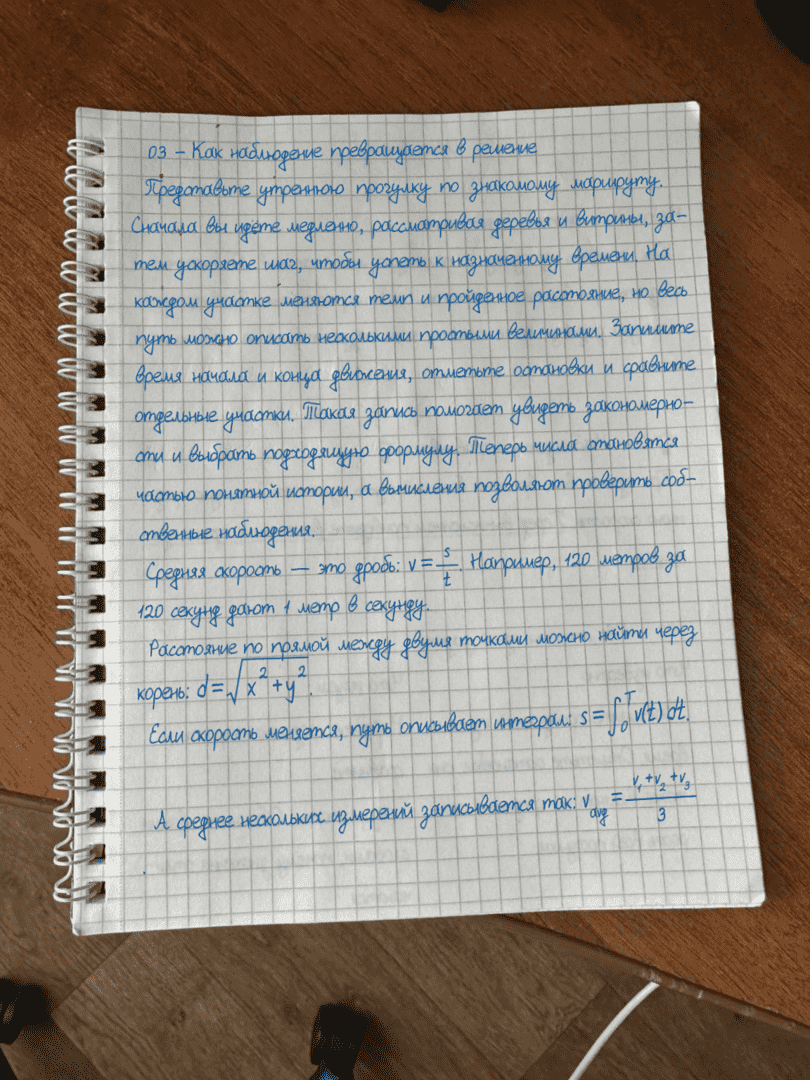 03 – Как наблюдение превращается в решение
Представьте утреннюю прогулку по знакомому маршруту.
Сначала вы идёте медленно, рассматривая деревья и витрины, за-
тем ускоряете шаг, чтобы успеть к назначенному времени. На
каждом участке меняются темп и пройденное расстояние, но весь
путь можно описать несколькими простыми величинами. Запишите
время начала и конца движения, отметьте остановки и сравните
отдельные участки. Такая запись помогает увидеть закономерно-
сти и выбрать подходящую формулу. Теперь числа становятся
частью понятной истории, а вычисления позволяют проверить соб-
ственные наблюдения.
Средняя скорость — это дробь: v = s/t. Например, 120 метров за
120 секунд дают 1 метр в секунду.
Расстояние по прямой между двумя точками можно найти через
корень: d = √(x² + y²).
Если скорость меняется, путь описывает интеграл: s = ∫₀ᵀ v(t) dt.
А среднее нескольких измерений записывается так: v_avg = (v₁ + v₂ + v₃)/3
.